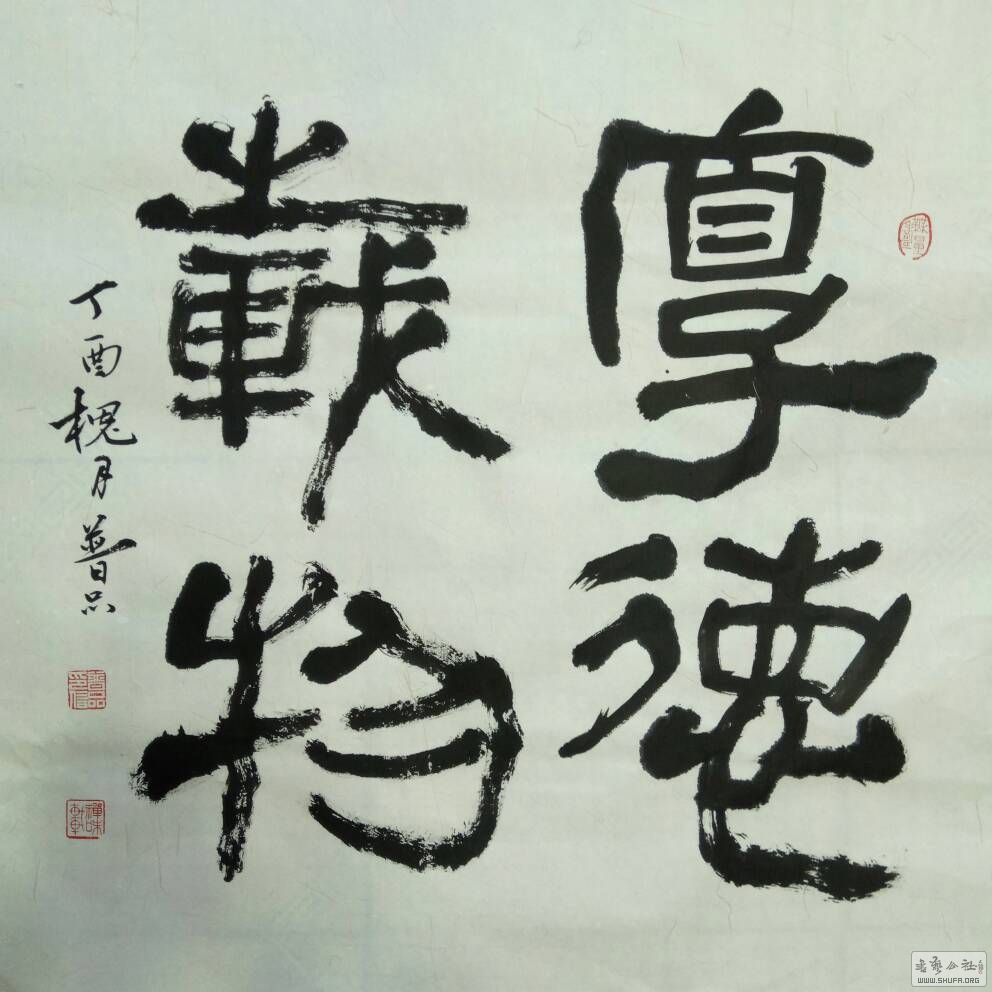 厚德
載物
丁酉槐月普品
書艺公社
WWW.SHUFA.ORG